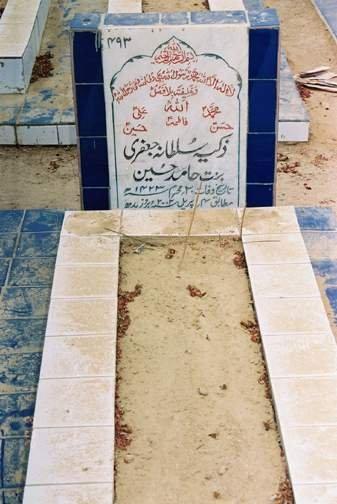 ۱۴۹۳
بسم اللہ الرحمن الرحیم
لا الہ الا اللہ محمد رسول اللہ علی ولی اللہ
اللہ
محمد علی
فاطمہ
حسن حسین
ذکیہ سلطانہ جعفری
بنت حامد حسین
تاریخ وفات ۲۰ محرم ۱۴۲۳ھ
مطابق ۴ اپریل ۲۰۰۲ء بروز بدھ